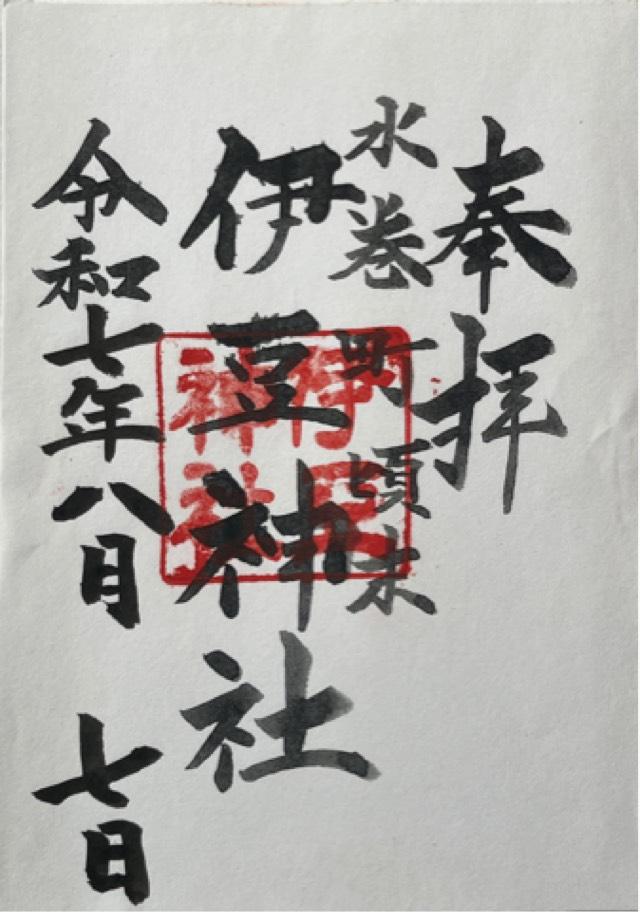 奉拝
水巻町頃末
伊豆神社
伊豆神社
令和七年八月 七日